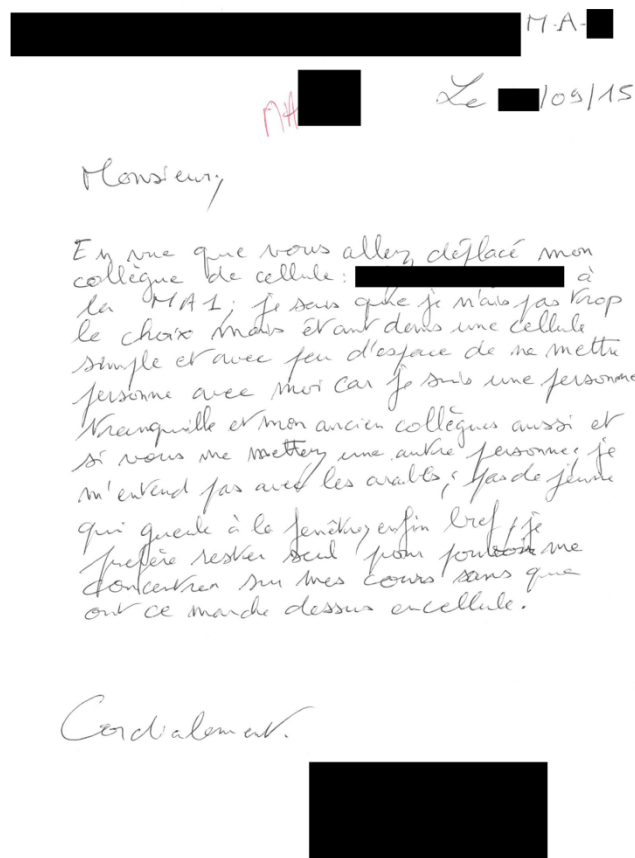 M-A-
MA
Le /09/15
Monsieur,
En vue que vous allez déplacé mon
collègue de cellule : à
la MA1, je sais que je n'ais pas trop
le choix mais étant dans une cellule
simple et avec peu d'espace de ne mettre
personne avec moi car je suis une personne
tranquille et mon ancien collègues aussi et
si vous me mettez une autre personne, je
m'entend pas avec les arabes, pas de jeune
qui gueule à la fenêtre, enfin bref, je
préfère rester seul pour pouvoir me
concentrer sur mes cours sans que
ont ce marche dessus en cellule.
Cordialement.